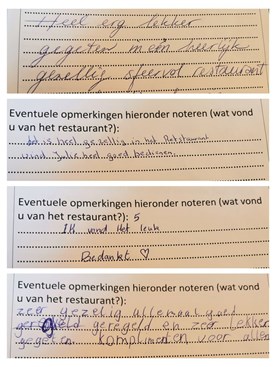 Heel erg lekker
gegeten in een heerlijk
gezellig sfeervol restaurant
Eventuele opmerkingen hieronder noteren (wat vond
u van het restaurant?):
het is heel gezellig in het Restaurant
vind Jullie heel goed bedienen.
Eventuele opmerkingen hieronder noteren (wat vond
u van het restaurant?): 5
IK vond Het leuk
Bedankt ♡
Eventuele opmerkingen hieronder noteren (wat vond
u van het restaurant?):
zeer gezelig allemaal goed
geregeld en zeer lekker
gegeten. Komplimenten voor allen